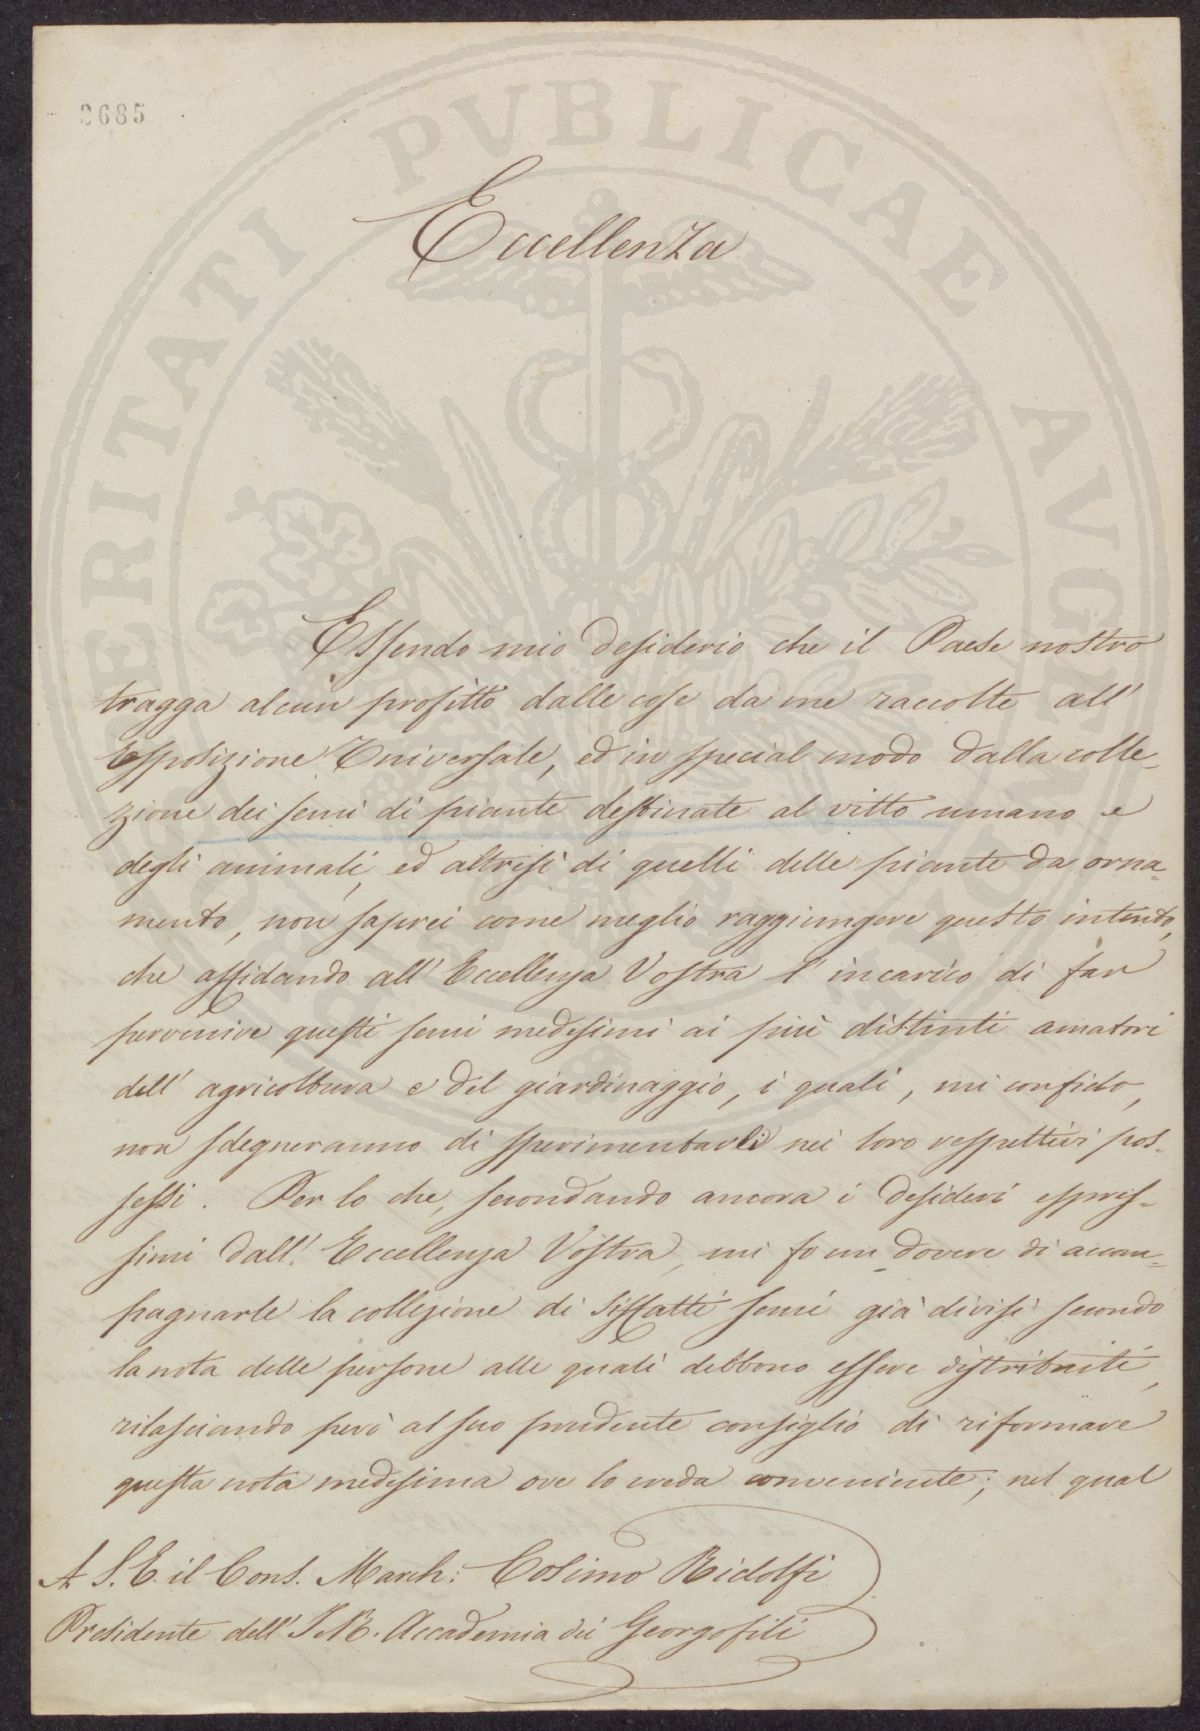 2685
PROSPERITATI PVBLICAE AVGENDAE
Eccellenza
Essendo mio desiderio che il Paese nostro
tragga alcun profitto dalle cose da me raccolte all'
Esposizione Universale, ed in special modo dalla colle-
zione dei semi di piante destinate al vitto umano e
degli animali, ed altresì di quelli delle piante da orna-
mento, non saprei come meglio raggiungere questo intento,
che affidando all' Eccellenza Vostra l' incarico di far
pervenire questi semi medesimi ai più distinti amatori
dell' agricoltura e del giardinaggio, i quali, mi confido,
non sdegneranno di sperimentarli nei loro respettivi pos-
sessi. Per lo che, secondando ancora i desideri espres-
simi dall' Eccellenza Vostra, mi fo un dovere di accom-
pagnarle la collezione di siffatti semi già divisi secondo
la nota delle persone alle quali debbono essere distribuiti,
rilasciando però al suo prudente consiglio di riformare
questa nota medesima ove lo creda conveniente; nel qual
A S. E. il Cons. March: Cosimo Ridolfi
Presidente dell' I. e R. Accademia dei Georgofili